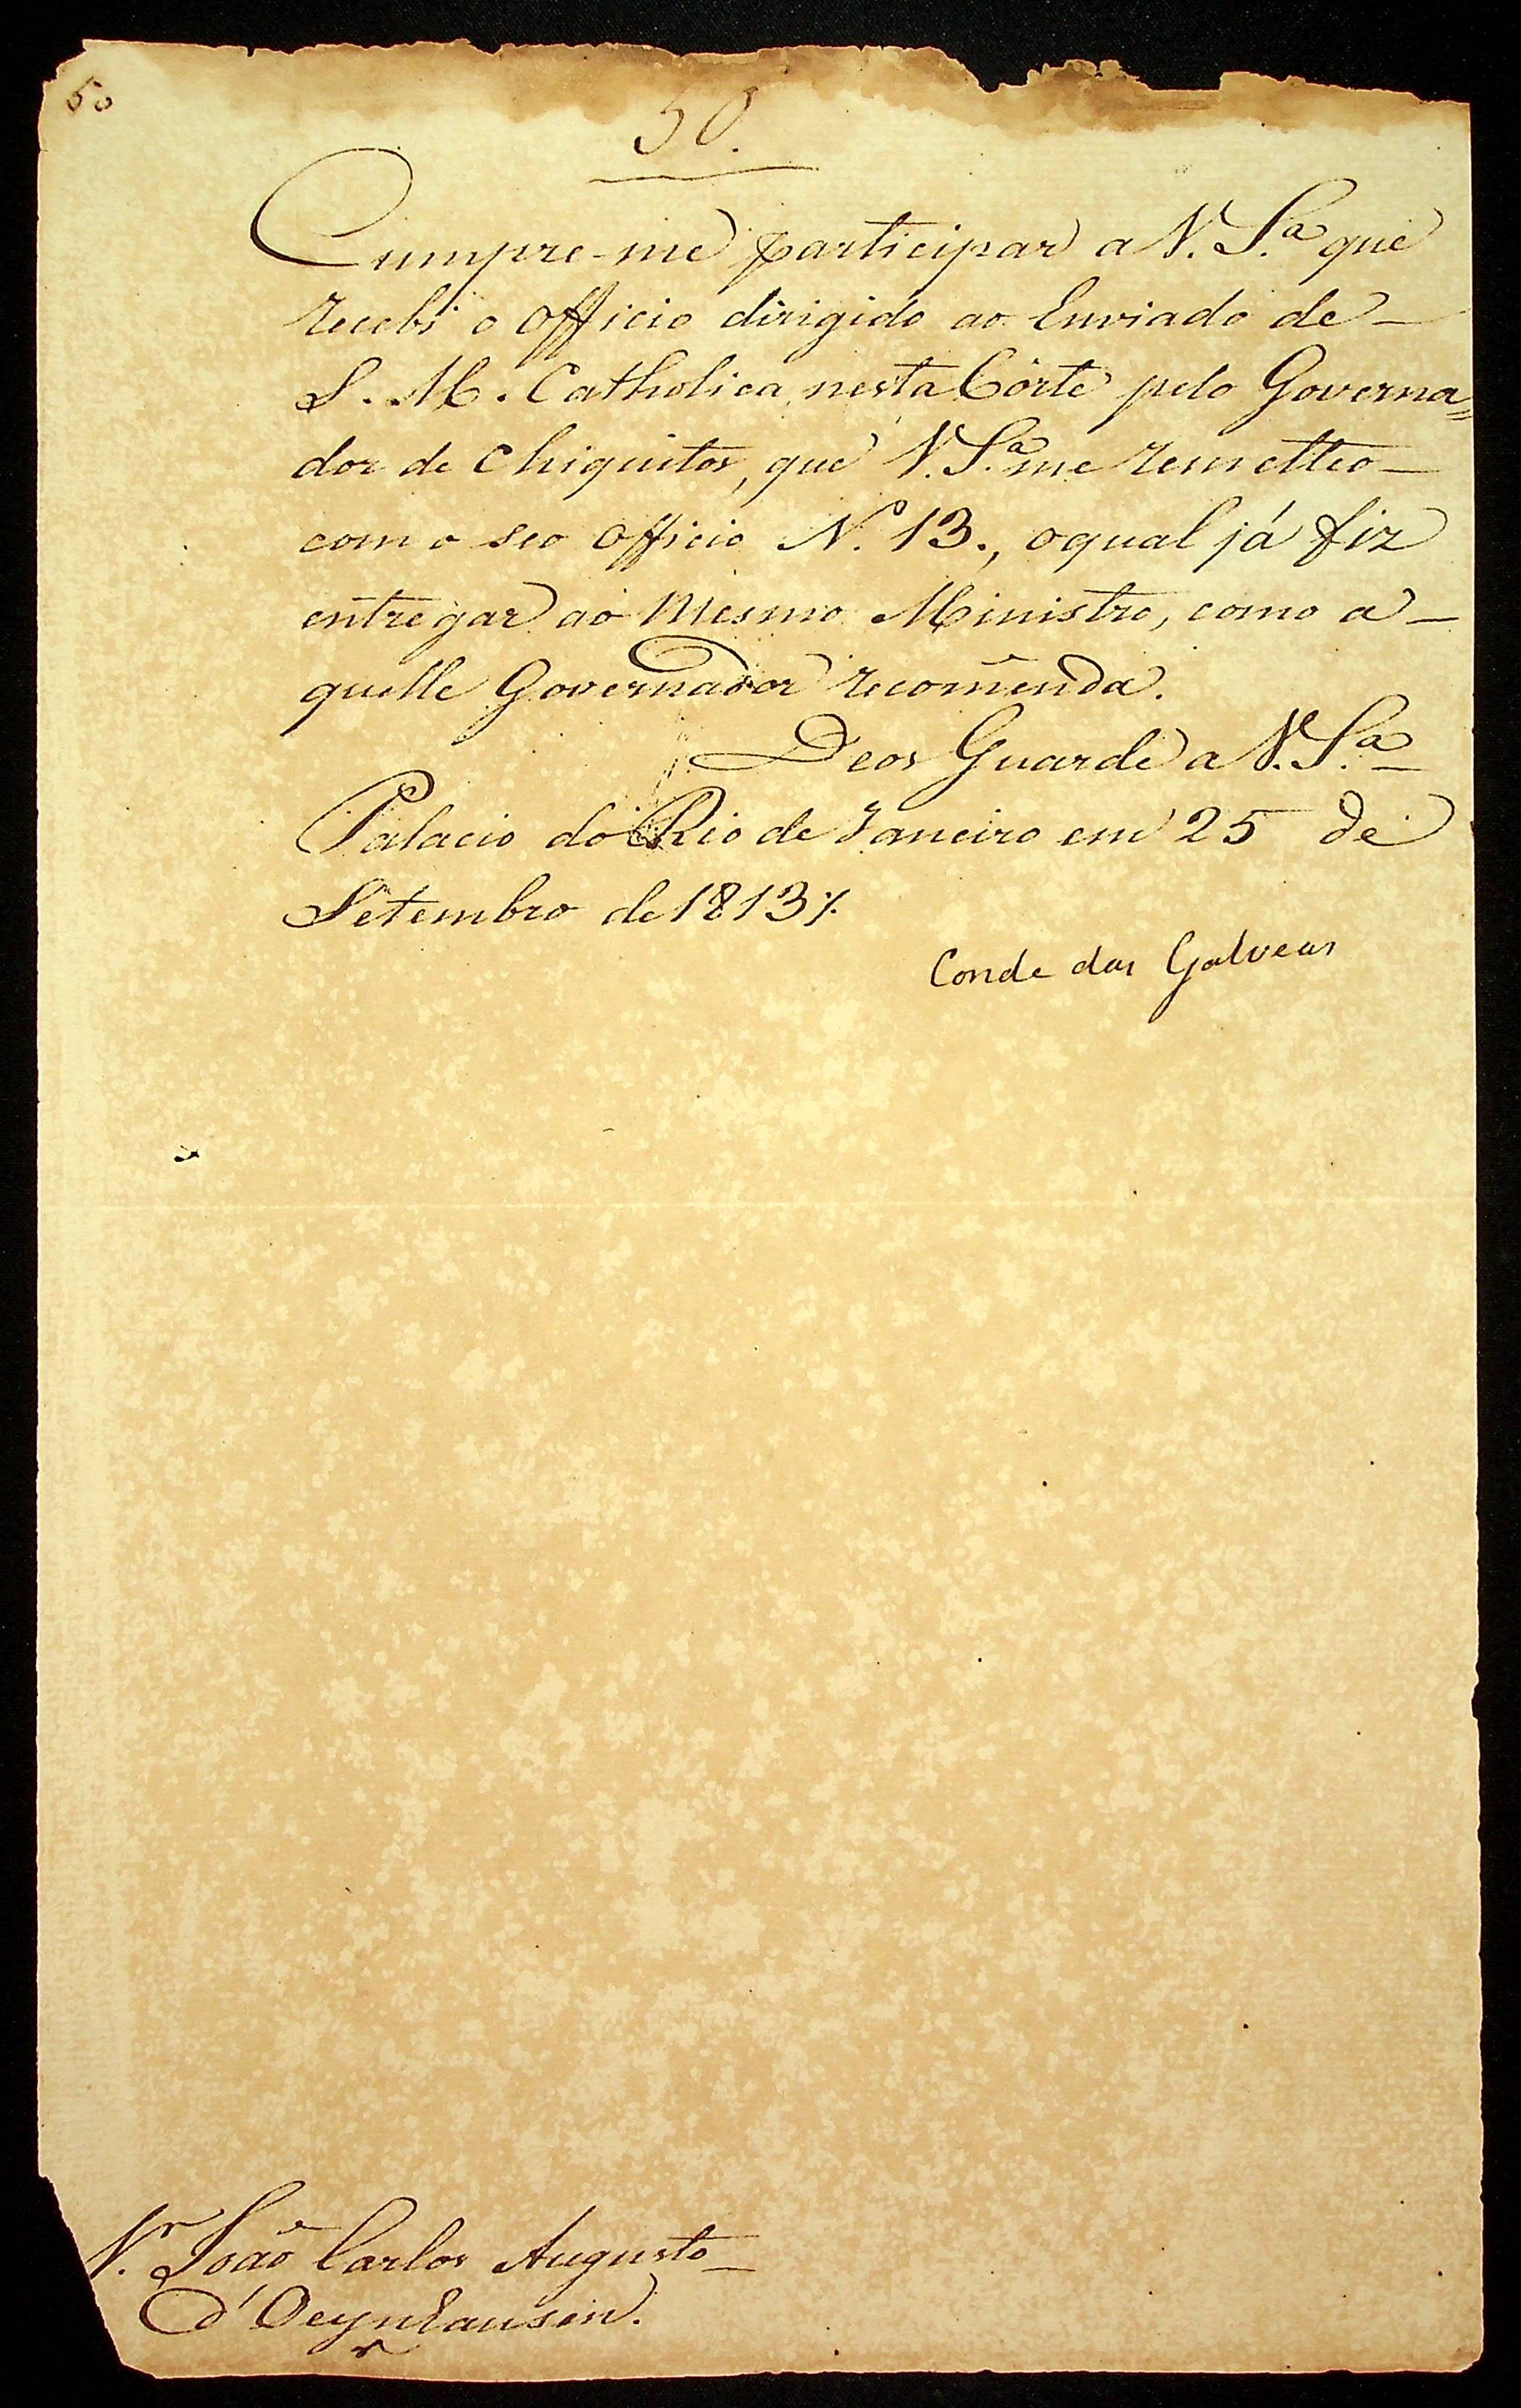 50
50.
Cumpre-me participar a V. S.ª que
recebi o officio dirigido ao Enviado de
S. M. Catholica nesta Côrte pelo Governa=
dor de Chiquitos, que V. S.ª me remetteo
com o seo officio N.º 13., o qual já fiz
entregar ao Mesmo Ministro, como a-
quelle Governador recom̃enda.
Deos Guarde a V. S.ª
Palacio do Rio de Janeiro em 25 de
Setembro de 1813 ./.
Conde das Galveas
João Carlos Augusto
d'Oeynhausen.